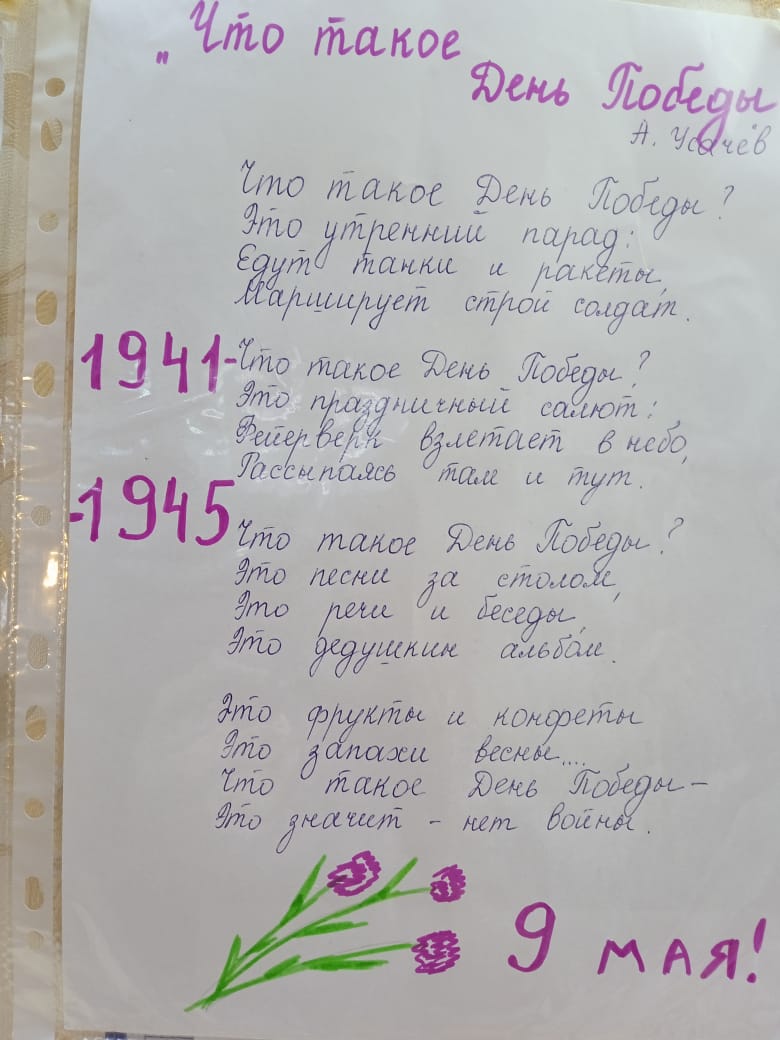 „Что такое
День Победы
А. Усачёв
Что такое День Победы?
Это утренний парад:
Едут танки и ракеты,
Марширует строй солдат.
1941-
Что такое День Победы?
Это праздничный салют:
Фейерверк взлетает в небо,
Рассыпаясь там и тут.
-1945
Что такое День Победы?
Это песни за столом,
Это речи и беседы,
Это дедушкин альбом.
Это фрукты и конфеты
Это запахи весны....
Что такое День Победы –
Это значит – нет войны.
9 мая!